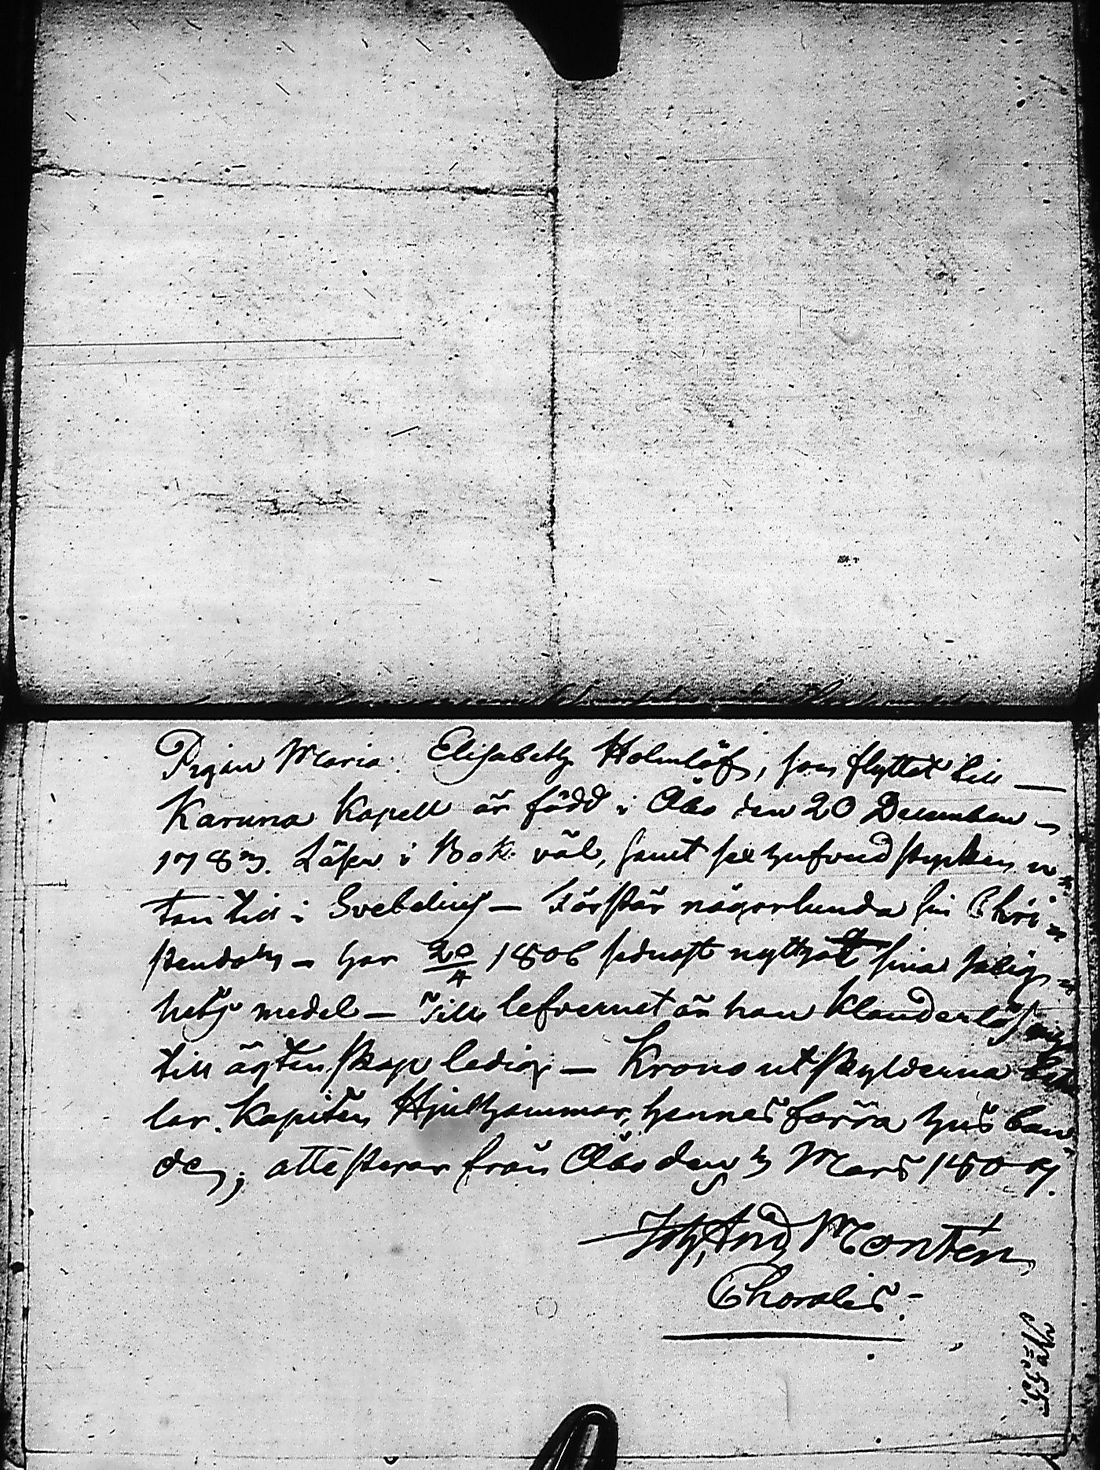 Pigan Maria Elisabeth Holmlöf, som flyttat till
Karuna Kapell är född i Åbo den 20 December
1783. Läser i Bok väl, samt sex hufvudstycken u=
tan till i Svebelius – Förstår någorlunda sin Chri=
stendom – har 20/4 1806 sednast nyttjat sina salig=
hets medel – Till lefvernet är hon klanderlös
till ägtenskap ledig – Krono utskylderna beta
lar Kapiten Hjulhammar, hennes förra husbon
de; attesterar från Åbo den Mars 1807.
Joh, And Montén
Choralis.
No 55.